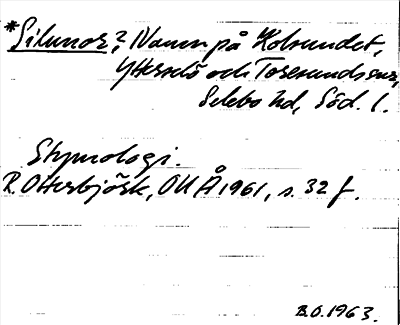 *Silunor? Namn på Kolsundet,
Ytterselö och Toresunds snr,
Selebo hd, Söd. l.
Etymologi.
R. Otterbjörk, OUÅ 1961, s. 32 f.
B.O. 1963.